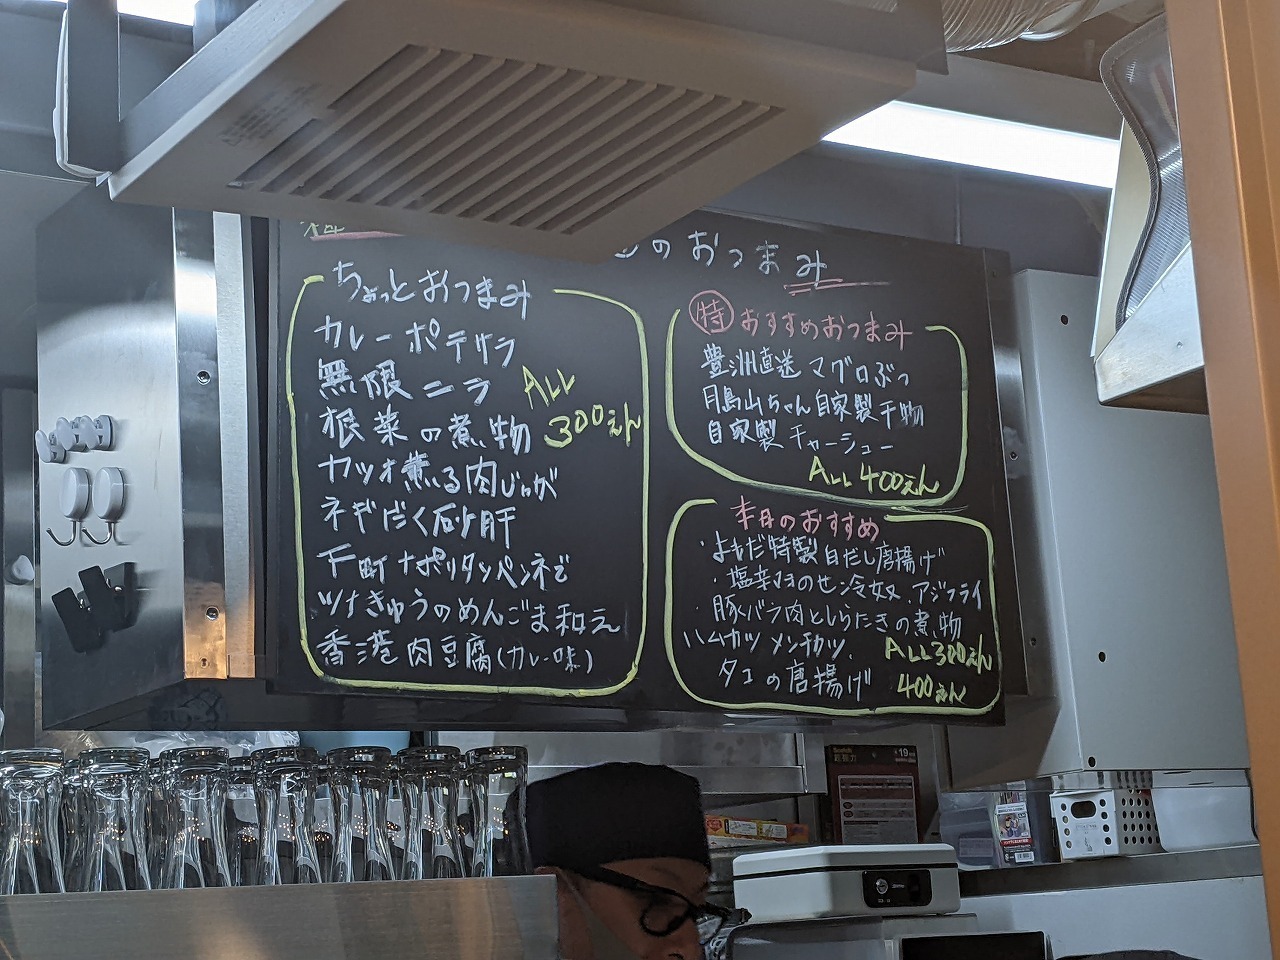 のおつまみ
ちょっとおつまみ
カレーポテサラ
無限ニラ
根菜の煮物
カツオ薫る肉じゃが
ネギだく砂肝
下町ナポリタンペンネで
ツナきゅうのめんごま和え
香港肉豆腐(カレー味)
ALL
300えん
特 おすすめおつまみ
豊洲直送 マグロぶつ
月島山ちゃん自家製干物
自家製チャーシュー
ALL 400えん
本日のおすすめ
・よもだ特製白だし唐揚げ
・塩辛のせ冷奴 ・アジフライ
・豚バラ肉としらたきの煮物
ハムカツ メンチカツ、
ALL300えん
タコの唐揚げ 400えん
Scotch
超強力
19